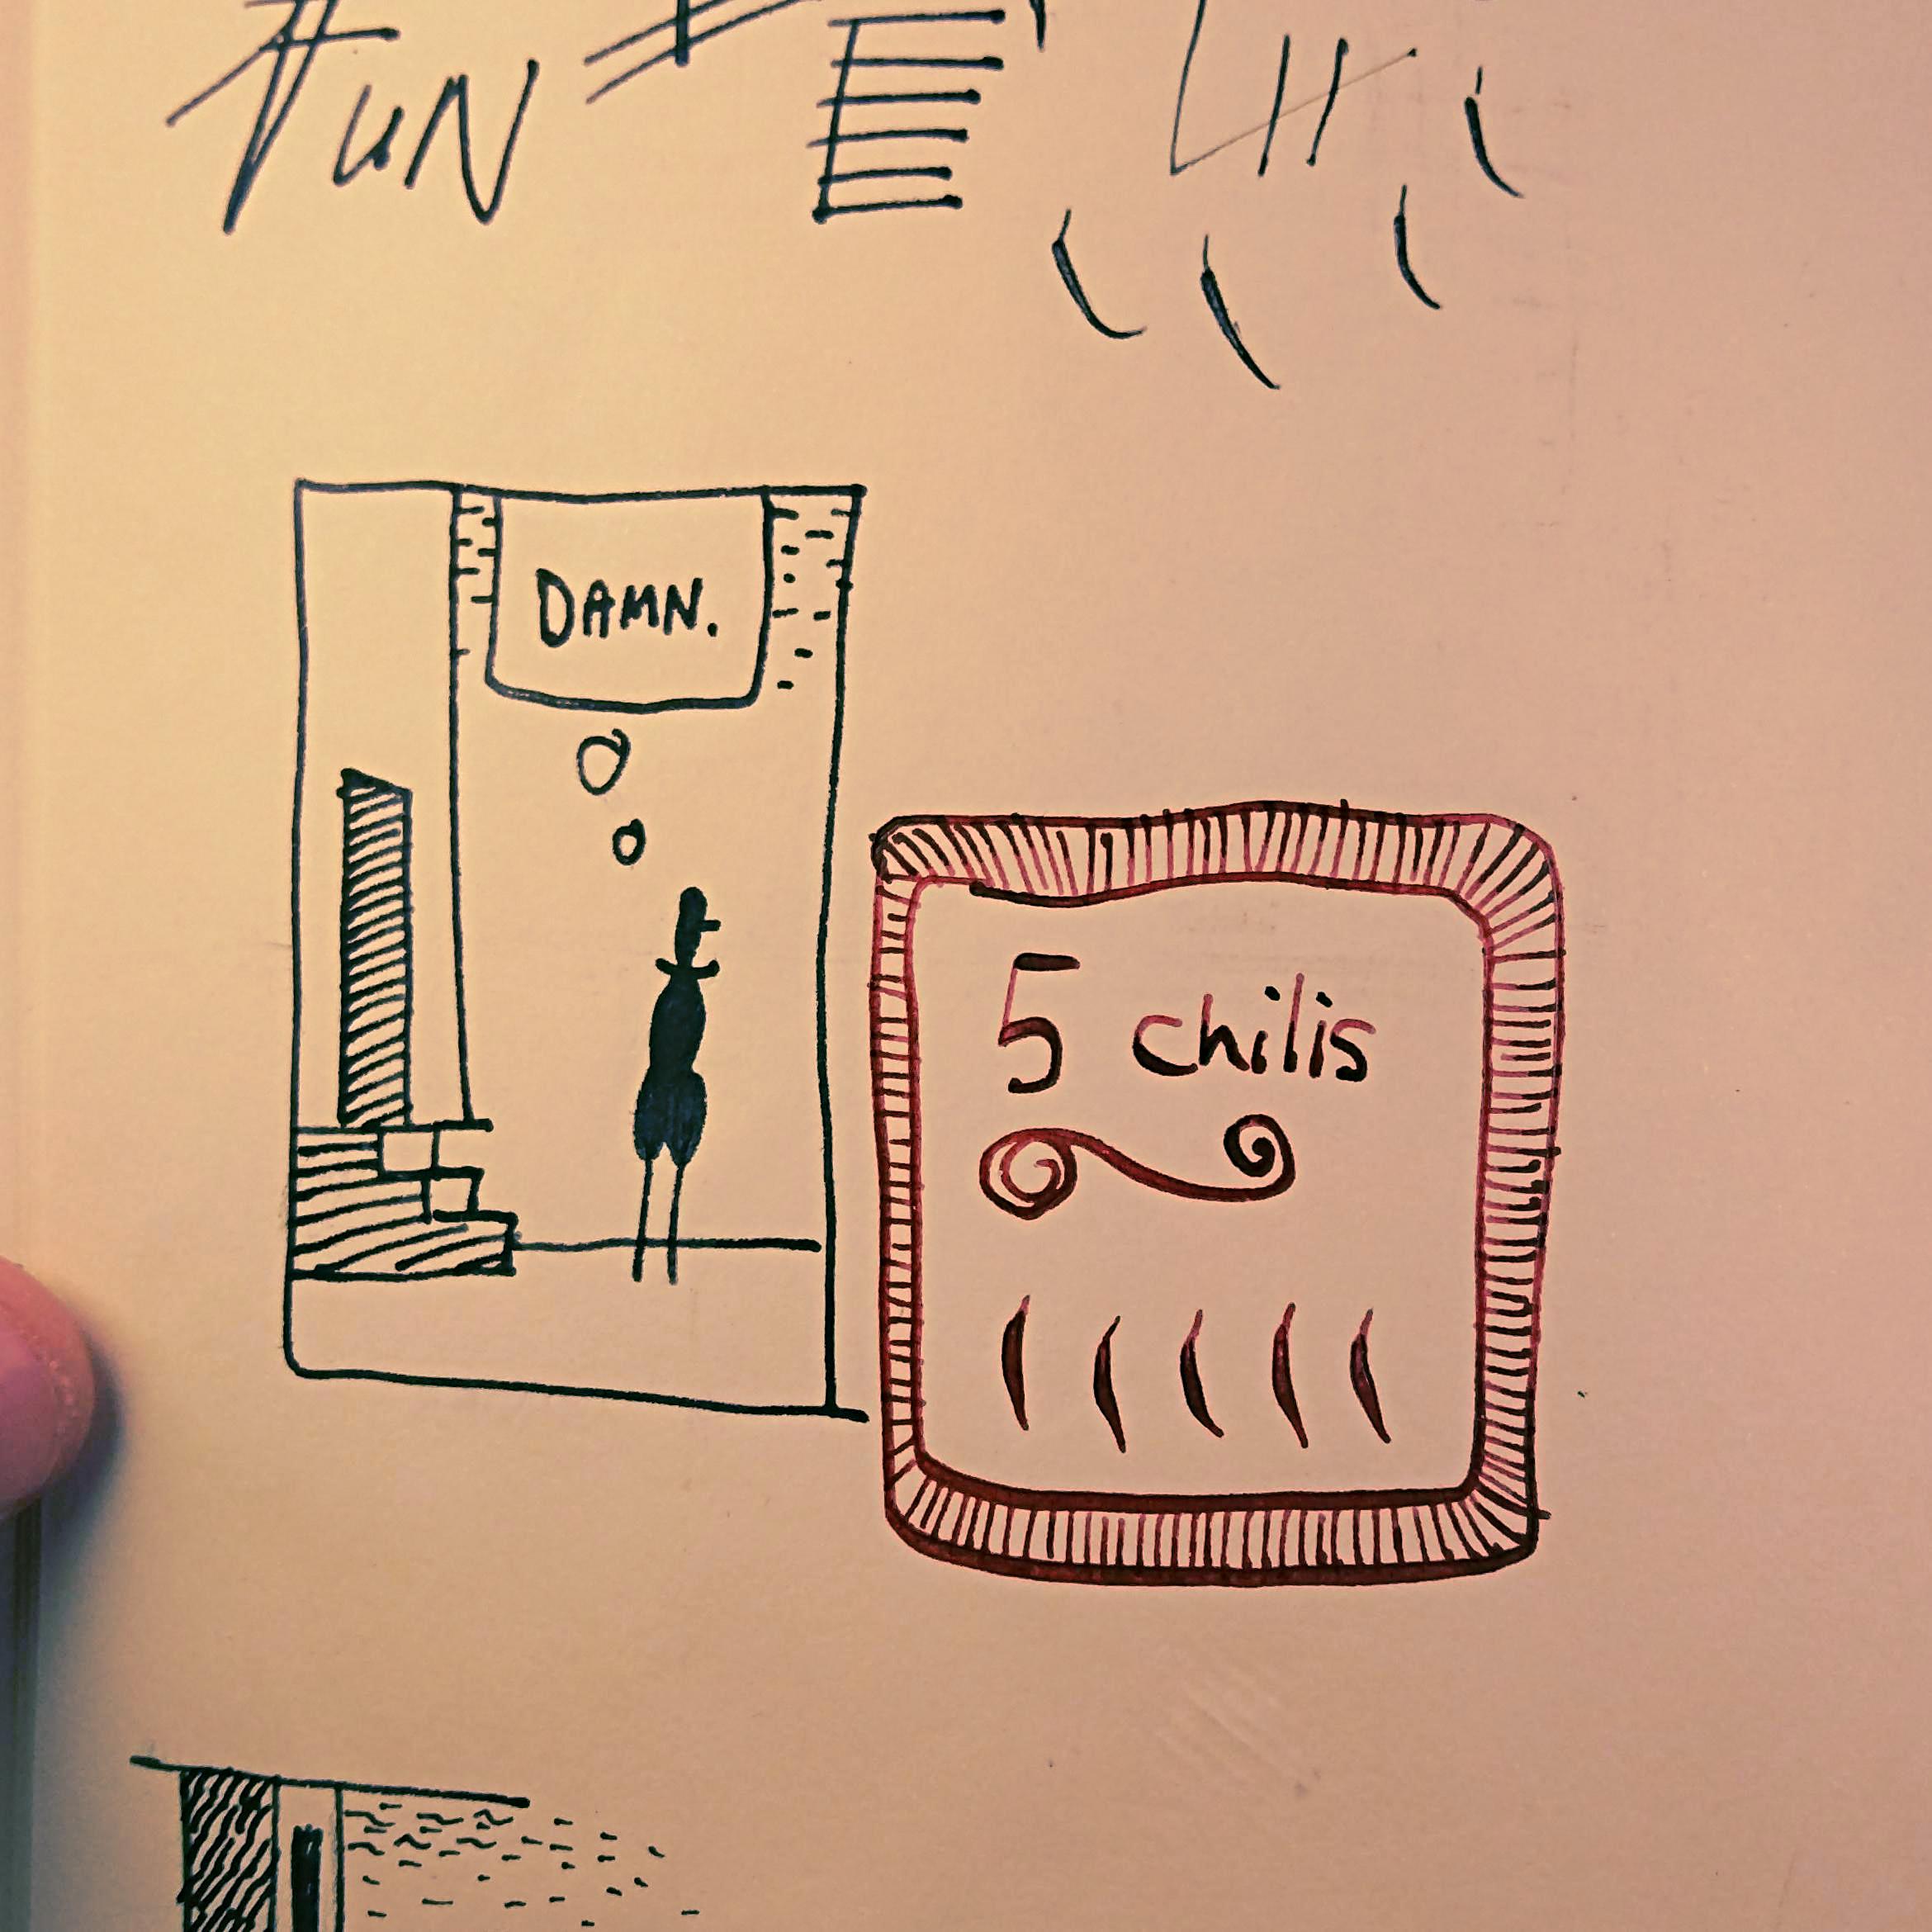 FUN
DAMN.
5 chilis